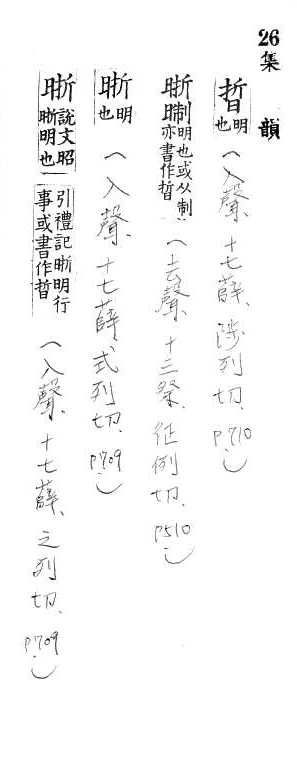 26集 韻
晢明也（入聲、十七薛、陟列切、p710）
晣明也或从制亦書作晢（去聲、十三祭、征例切、p510）
晣明也（入聲、十七薛、式列切、p709）
晣說文昭晣明也 引禮記晣明行事或書作晢（入聲、十七薛、之列切、p709）